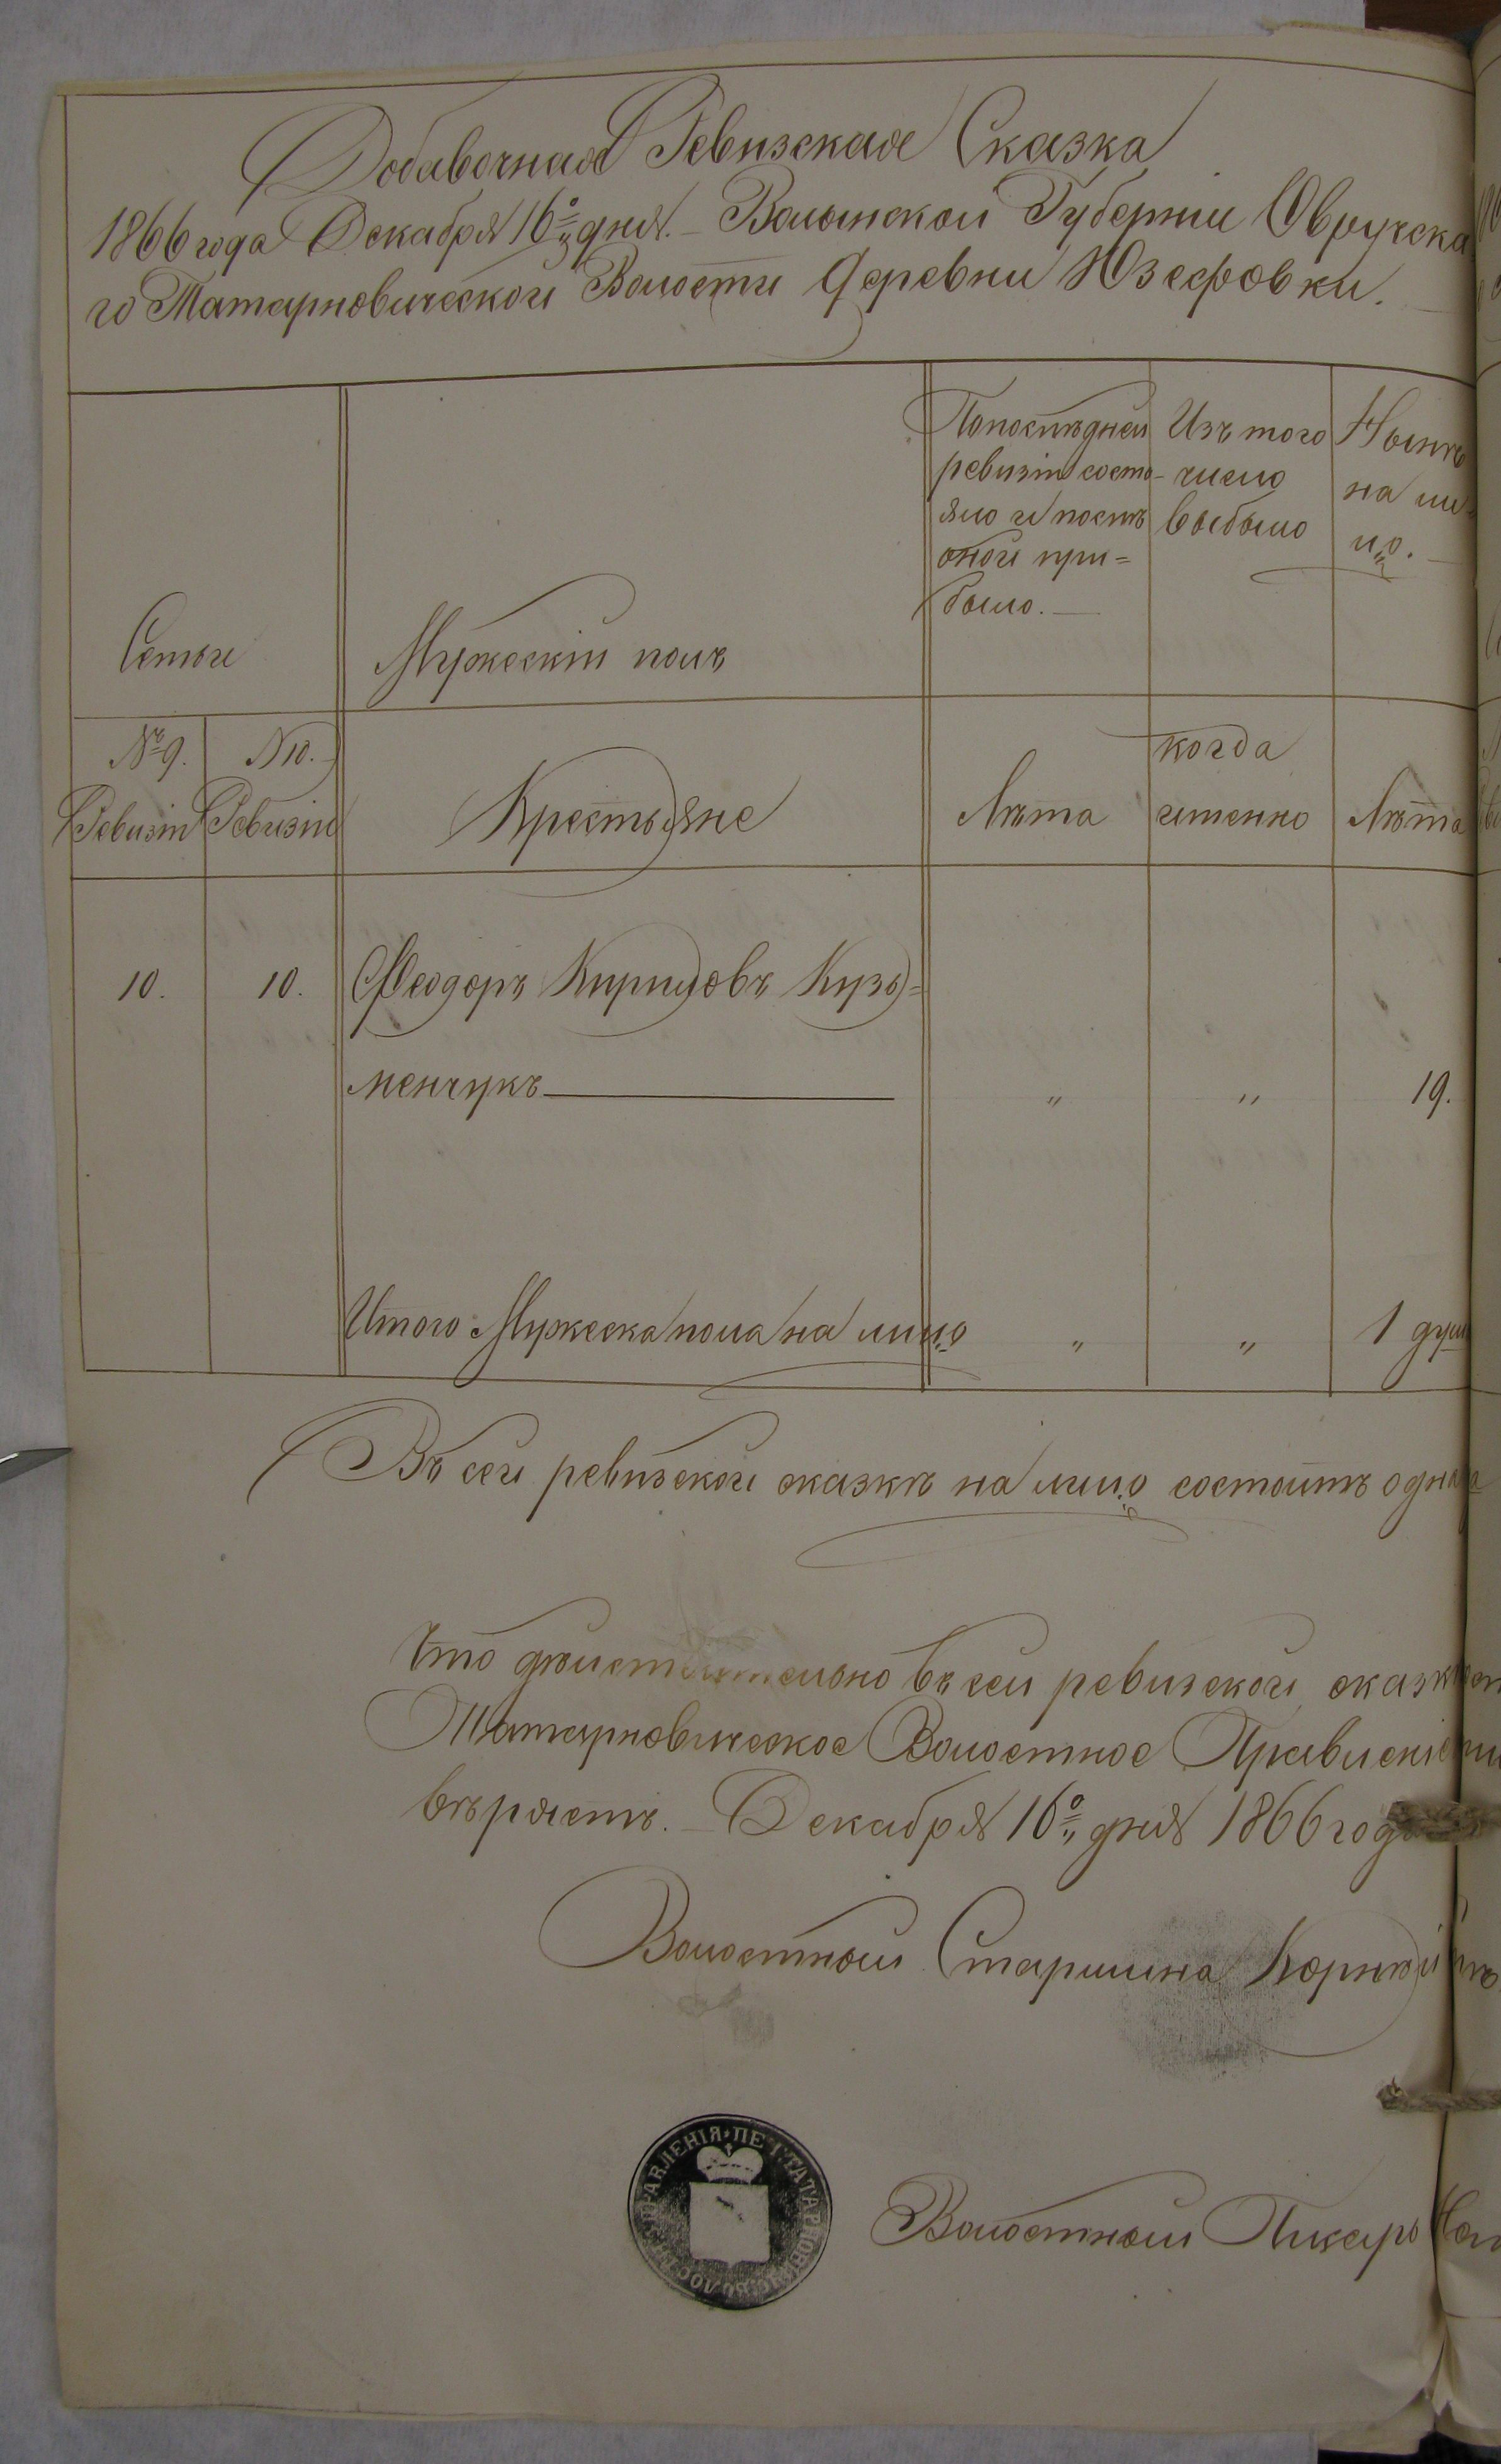 Добавочная Ревизская Сказка
1866 года Декабря 16го дня. – Волынской Губернии Овручска
го Татарновической Волости Деревни Юзефовки.
Семьи
Мужескій полъ
По последней
ревизіи состо-
яло и послѣ
оной при=
было. —
Изъ того
число
выбыло
Нынѣ
на ли-
цо.
№ 9. Ревизіи
N 10. Ревизіи
Крестьяне
Лѣта
когда
именно
Лѣта
10. 10. Феодоръ Кириловъ Кузь=
менчукъ „ „ 19.
Итого Мужеска пола на лицо „ „ 1 душ
Въ сей ревизской сказкѣ на лицо состоитъ одна
Что дѣйствительно въ сей ревизской сказкѣ
Татарновическое Волостное Правленіе
вѣряетъ. – Декабря 16го дня 1866 года
Волостной Старшина Корнѣй
ПРАВЛЕНІЯ • ПЕЧ. ТАТАРНОВИЧ
Волостной Писарь